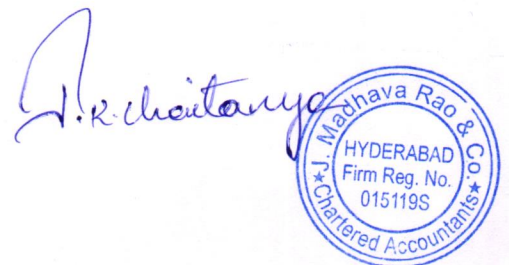 J.K.Chaitanya
J. Madhava Rao & Co.
HYDERABAD
Firm Reg. No.
015119S
★Chartered Accountants★